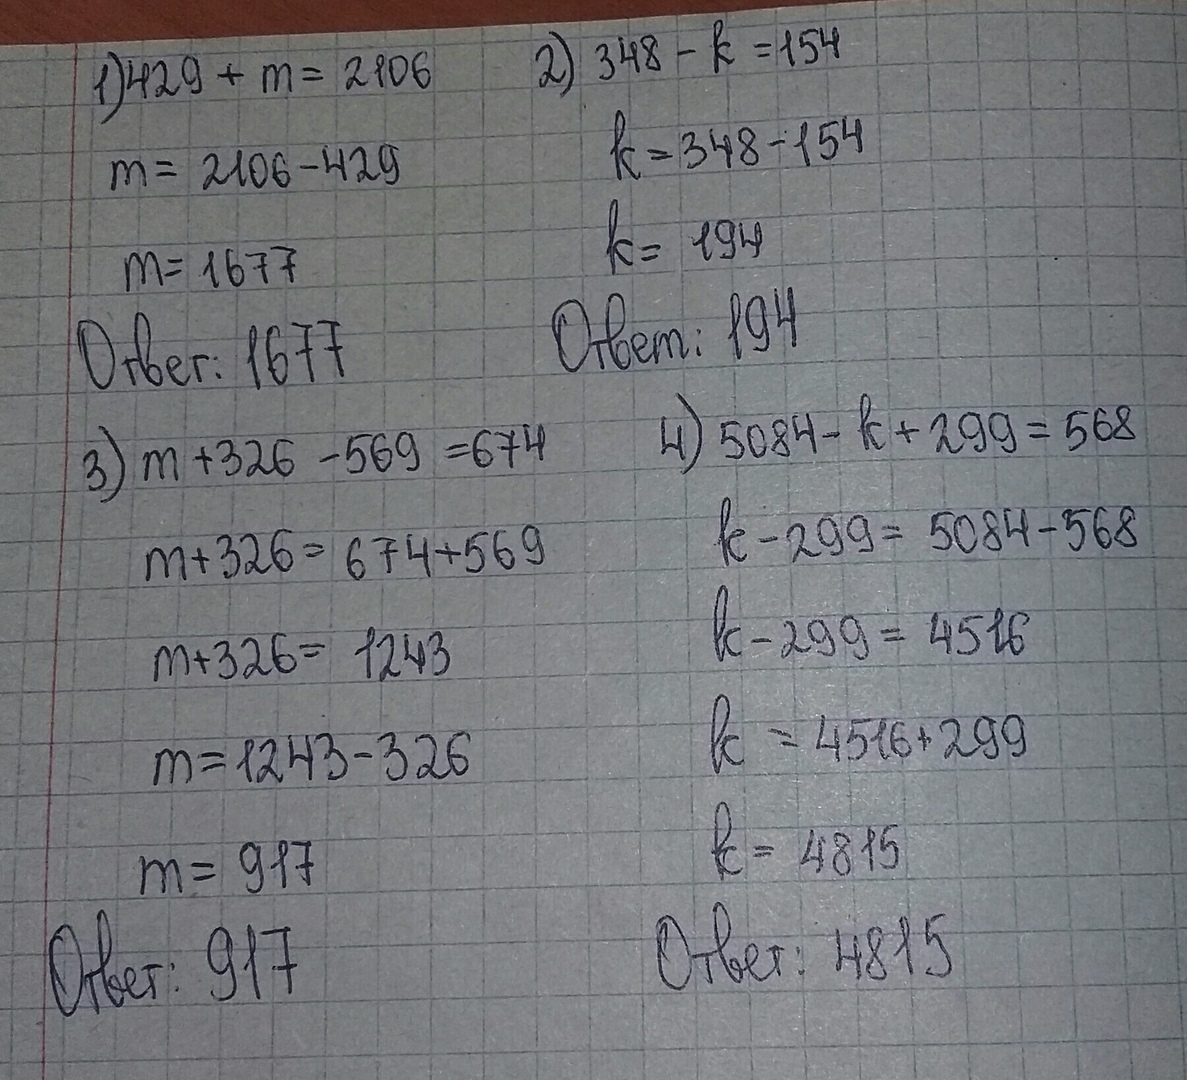 1) 429 + m = 2106
m = 2106 - 429
m = 1677
Ответ: 1677
2) 348 - k = 154
k = 348 - 154
k = 194
Ответ: 194
3) m + 326 - 569 = 674
m + 326 = 674 + 569
m + 326 = 1243
m = 1243 - 326
m = 917
Ответ: 917
4) 5084 - k + 299 = 568
k - 299 = 5084 - 568
k - 299 = 4516
k = 4516 + 299
k = 4815
Ответ: 4815